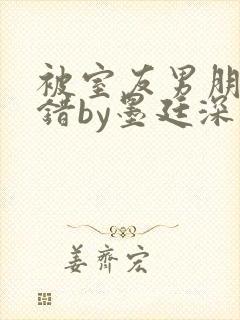 被室友男朋
错by墨廷深
姜齐宏